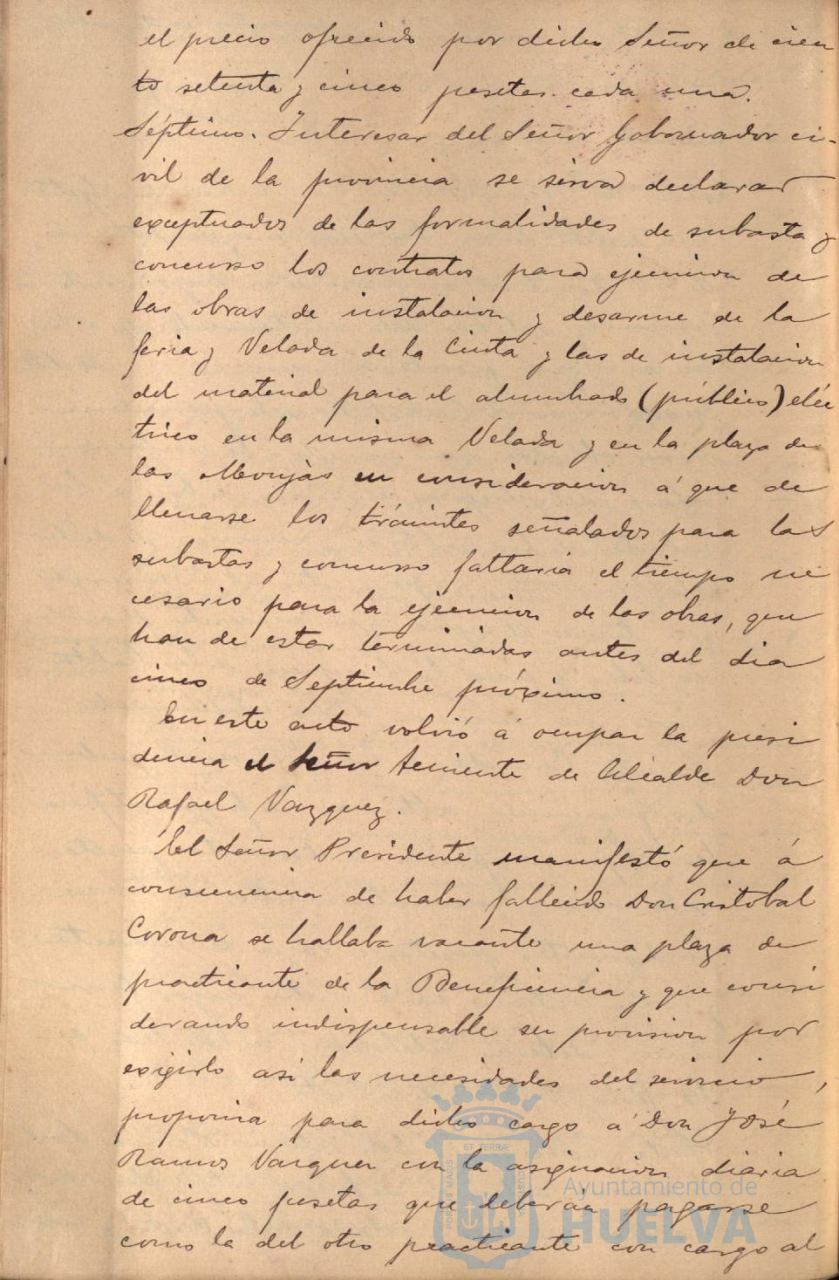 el precio ofrecido por dicho Señor de cien
to setenta y cinco pesetas cada una.
Séptimo. Interesar del Señor Gobernador ci-
vil de la provincia se sirva declarar
exceptuados de las formalidades de subasta y
concurso los contratos para ejecucion de
las obras de instalacion y desarme de la
feria y Velada de la Cinta y las de instalacion
del material para el alumbrado (público) eléc
trico en la misma Velada y en la plaza de
las Monjas en consideracion á que de
llenarse los trámites señalados para las
subastas y concurso faltaria el tiempo ne
cesario para la ejecucion de las obras, que
han de estar terminadas antes del dia
cinco de Septiembre próximo.
En este acto volvió á ocupar la presi
dencia el Señor Teniente de Alcalde Don
Rafael Vazquez.
El Señor Presidente manifestó que á
consecuencia de haber fallecido Don Cristobal
Corona se hallaba vacante una plaza de
practicante de la Beneficencia y que consi
derando indispensable su provision por
exigirlo asi las necesidades del servicio,
proponia para dicho cargo á Don José
Ramos Vazquez con la asignacion diaria
de cinco pesetas que deberán pagarse
como la del otro practicante con cargo al
Ayuntamiento de
HUELVA